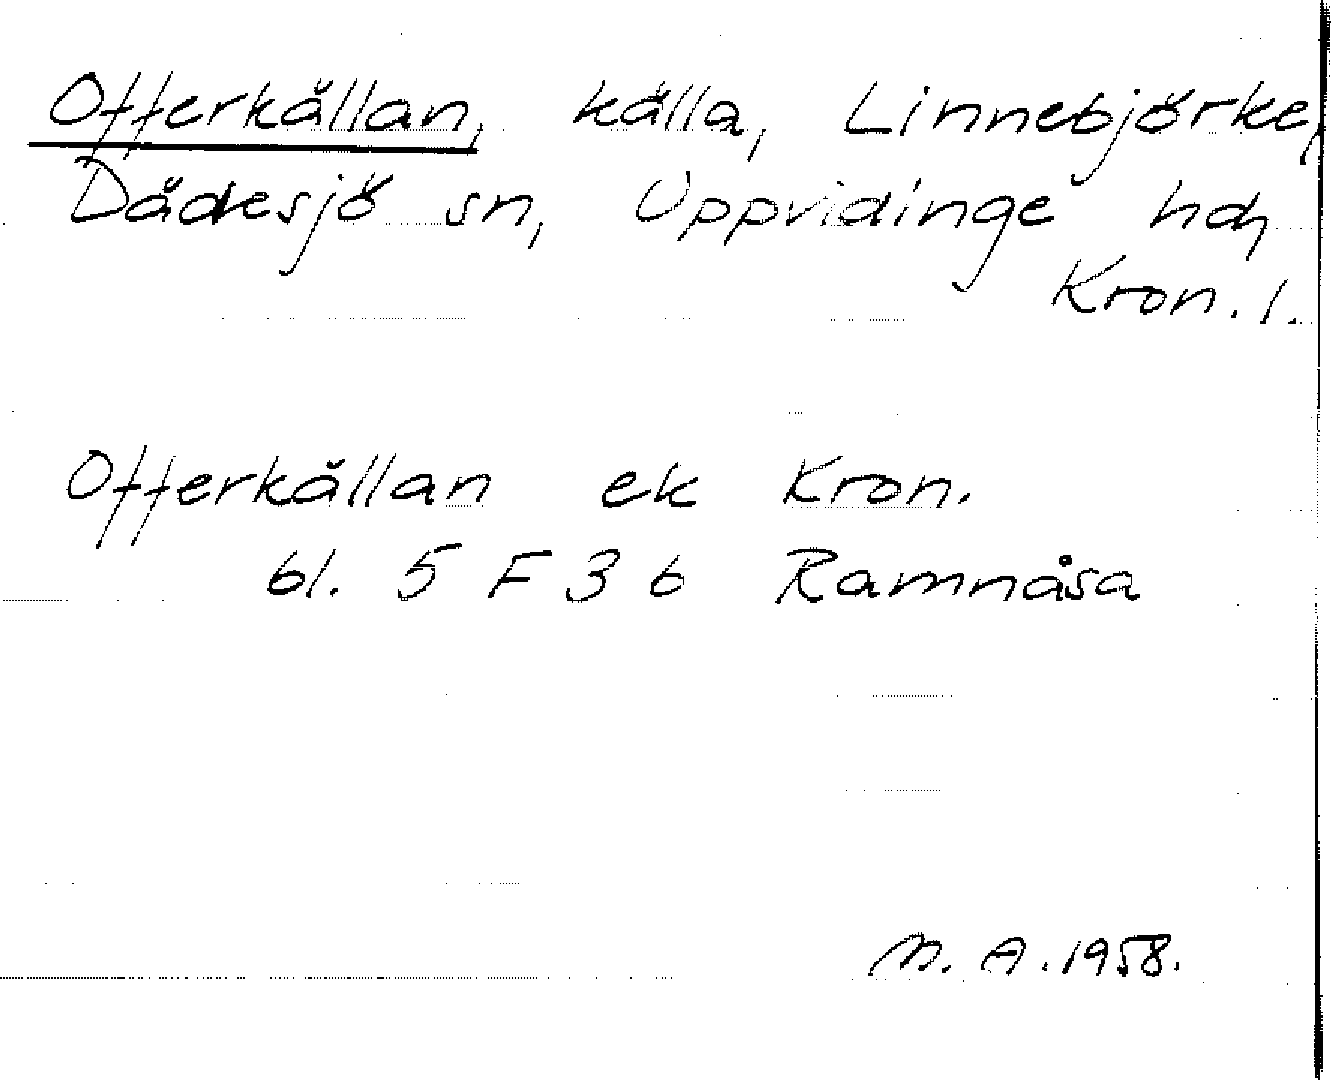 Offerkällan, källa, Linnebjörke,
Dädesjö sn, Uppvidinge hd,
Kron. l.
Offerkällan ek Kron.
bl. 5 F 3 b Ramnåsa
M. A. 1958.